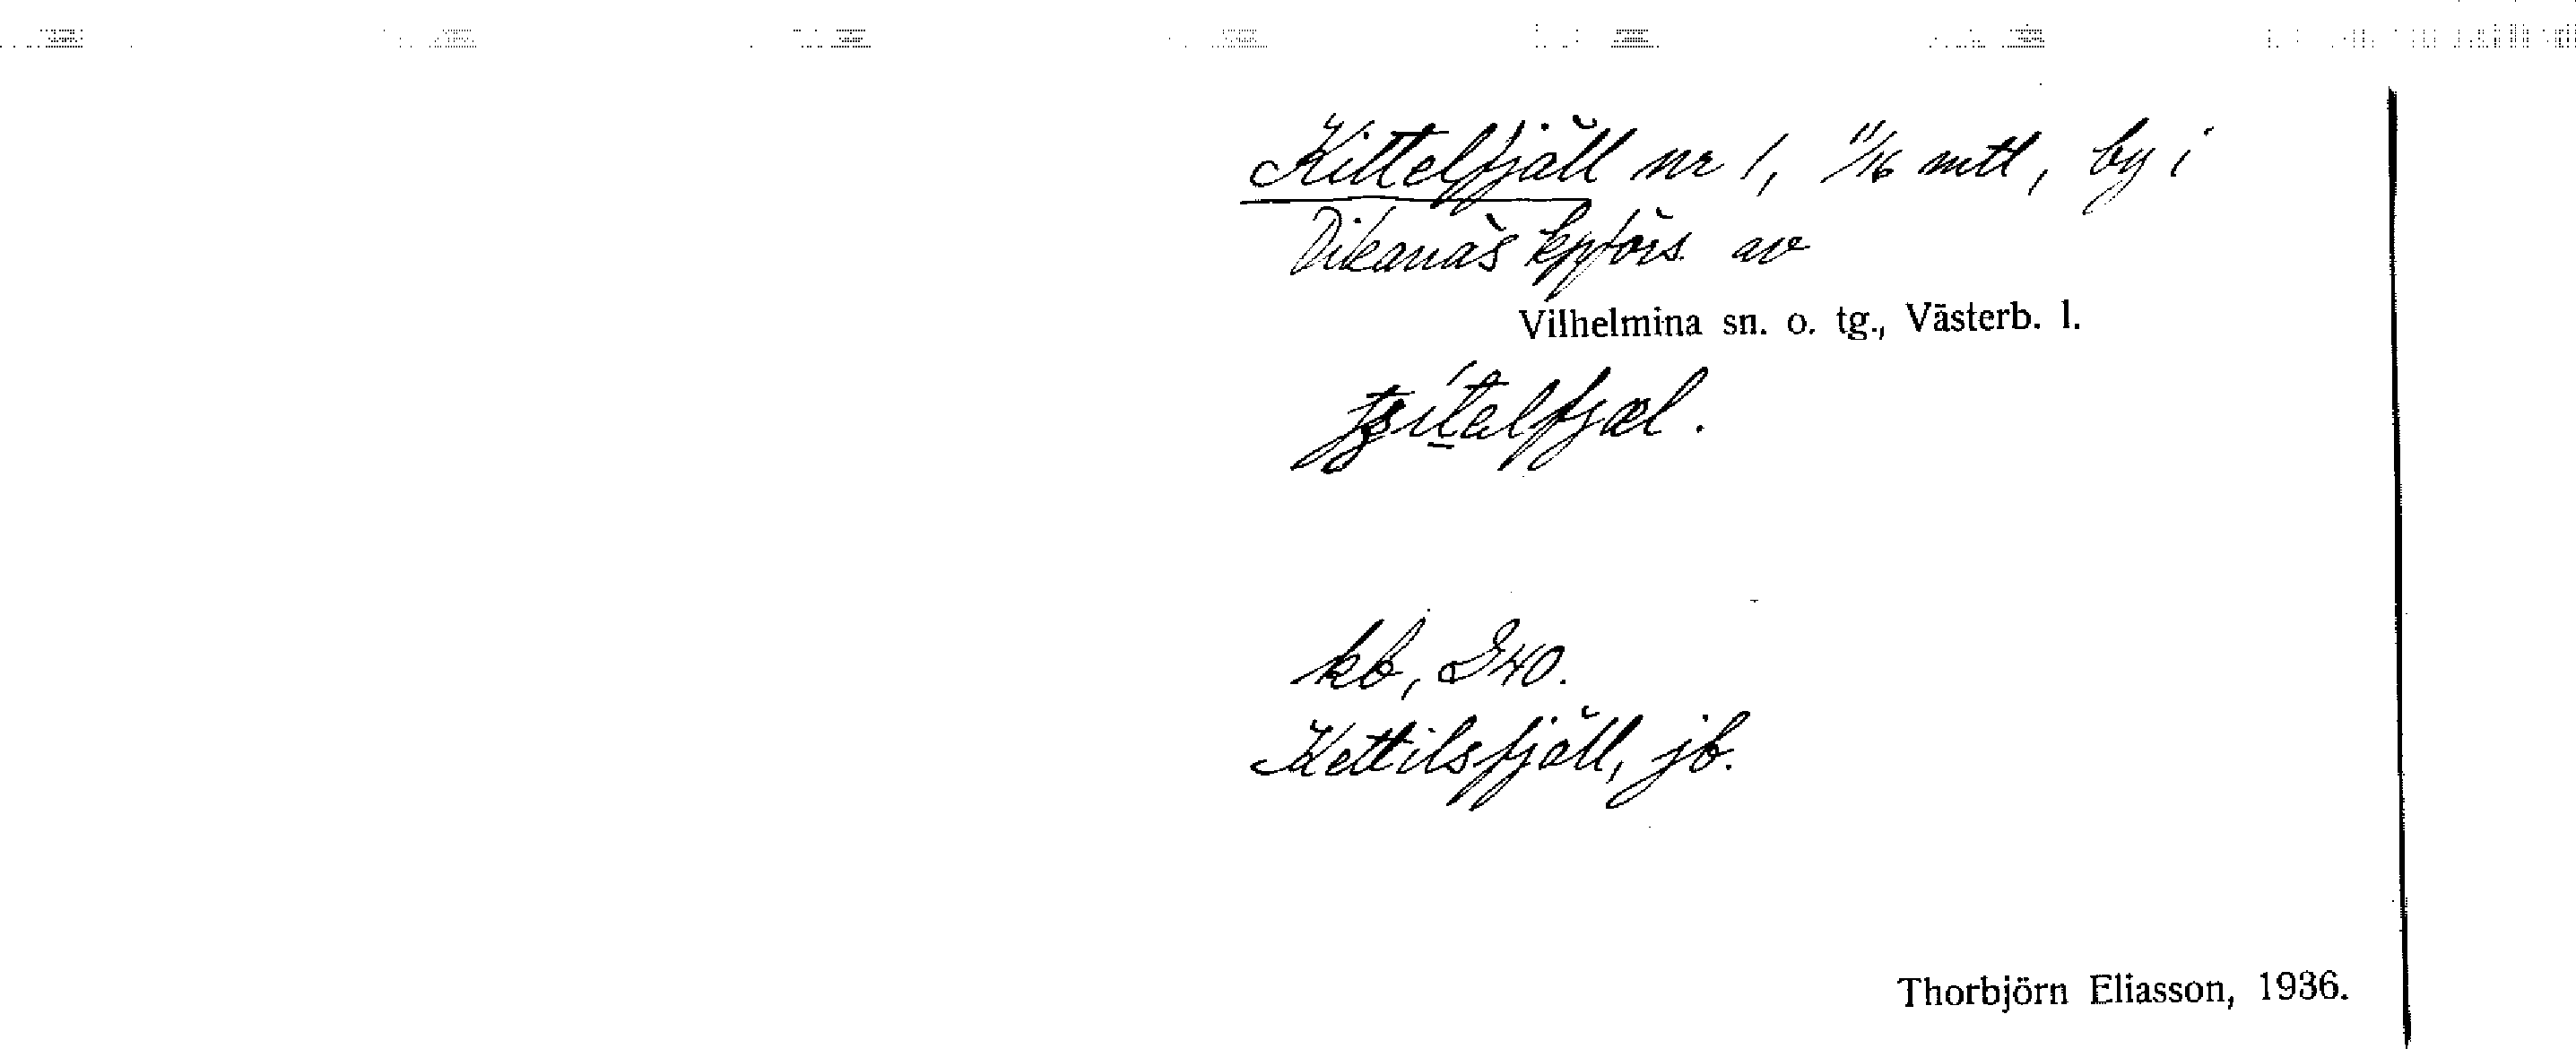 Kittelfjäll nr 1, 11/16 mtl, by i
Dikanäs kpförs. av
Vilhelmina sn. o. tg., Västerb. l.
kb, G40.
Kettilsfjäll, jb.
Thorbjörn Eliasson, 1936.